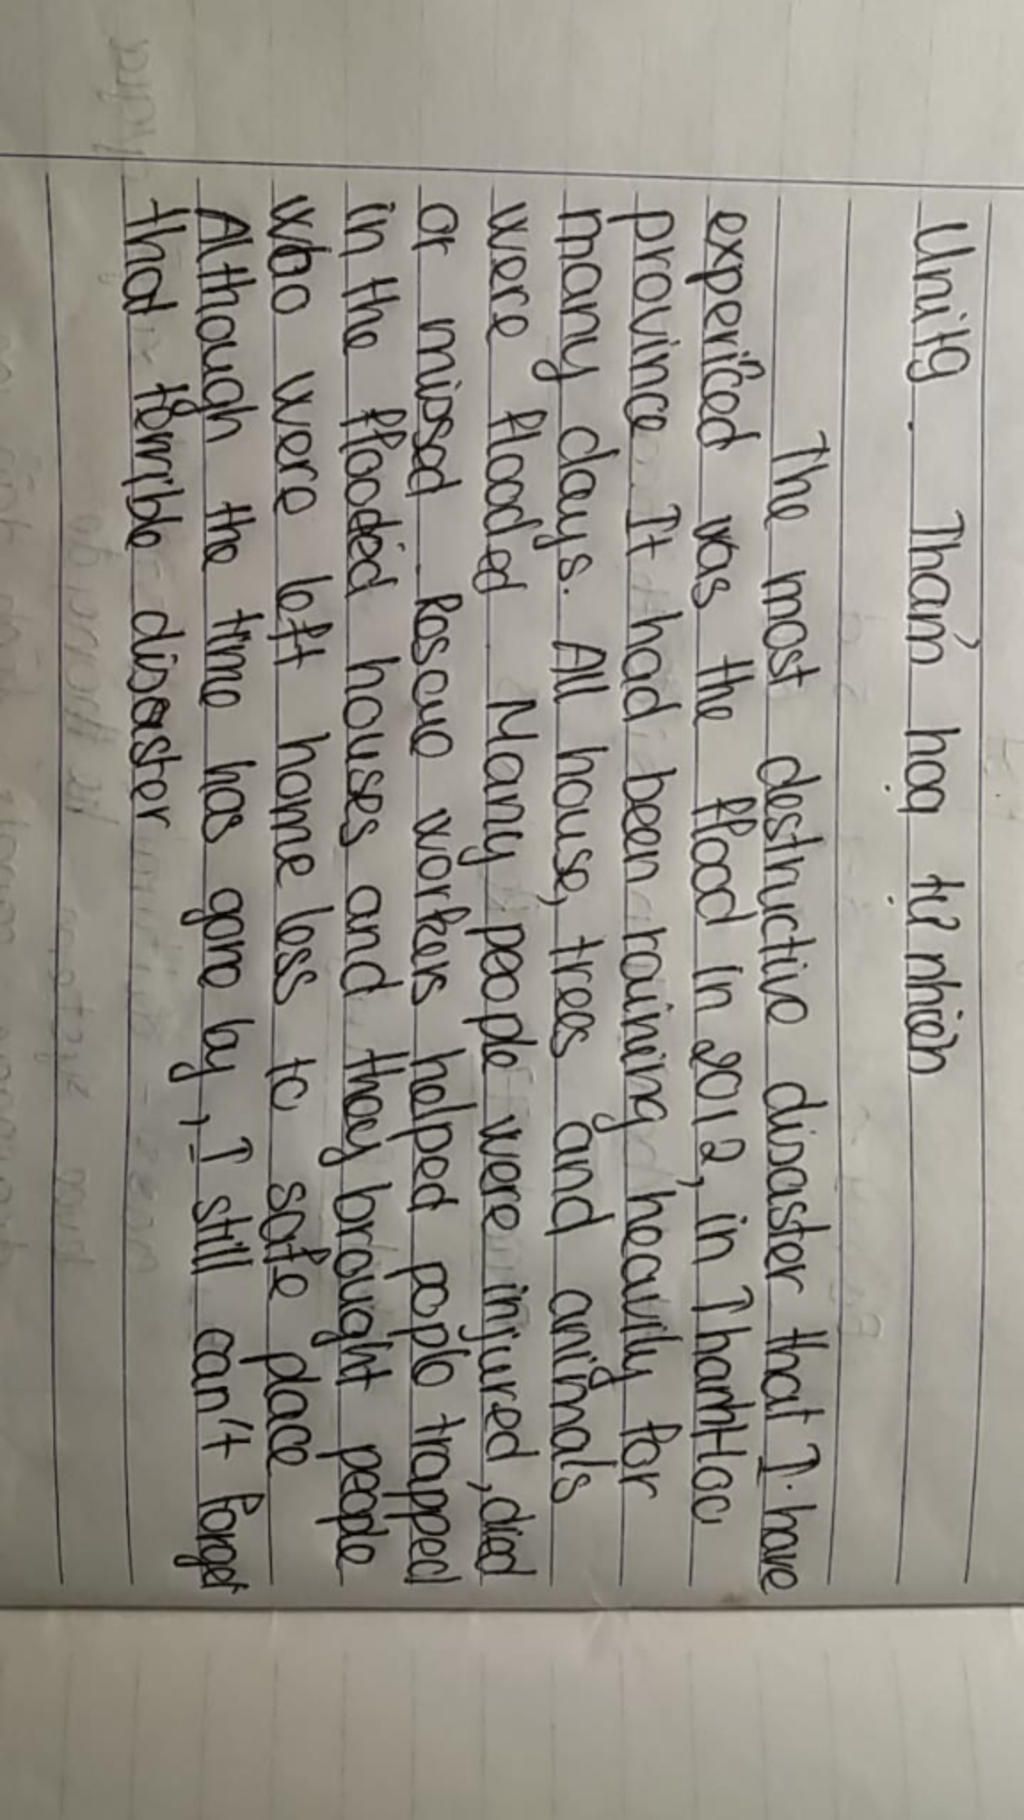 Unit9. Thảm hoạ tự nhiên
The most destructive disaster that I have
expericed was the flood in 2012, in ThanhHoa
province. It had been raining heavily for
many days. All house, trees and animals
were flooded. Many people were injured, died
or missed. Rescue workers helped pople trapped
in the flooded houses and they brought people
who were left home less to safe place
Although the time has gone by, I still can't forget
that terrible disaster